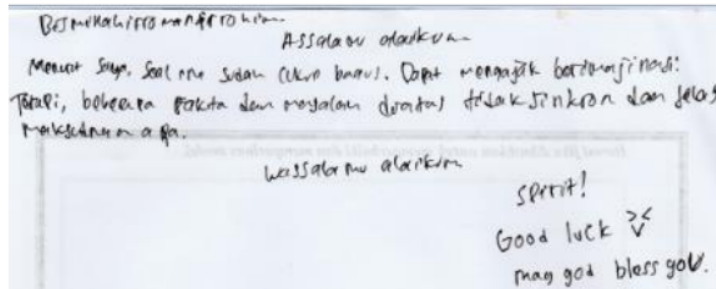 Bismillahirromanirrohim
Assalamu alaikum
Menurut saya, soal ini sudah cukup bagus. Dapat mengajak berimajinasi.
Tetapi, beberapa fakta dan masalah diatas tidak sinkron dan jelas
maksudnya apa.
Wassalamu alaikum
Spirit!
Good luck
may god bless you.